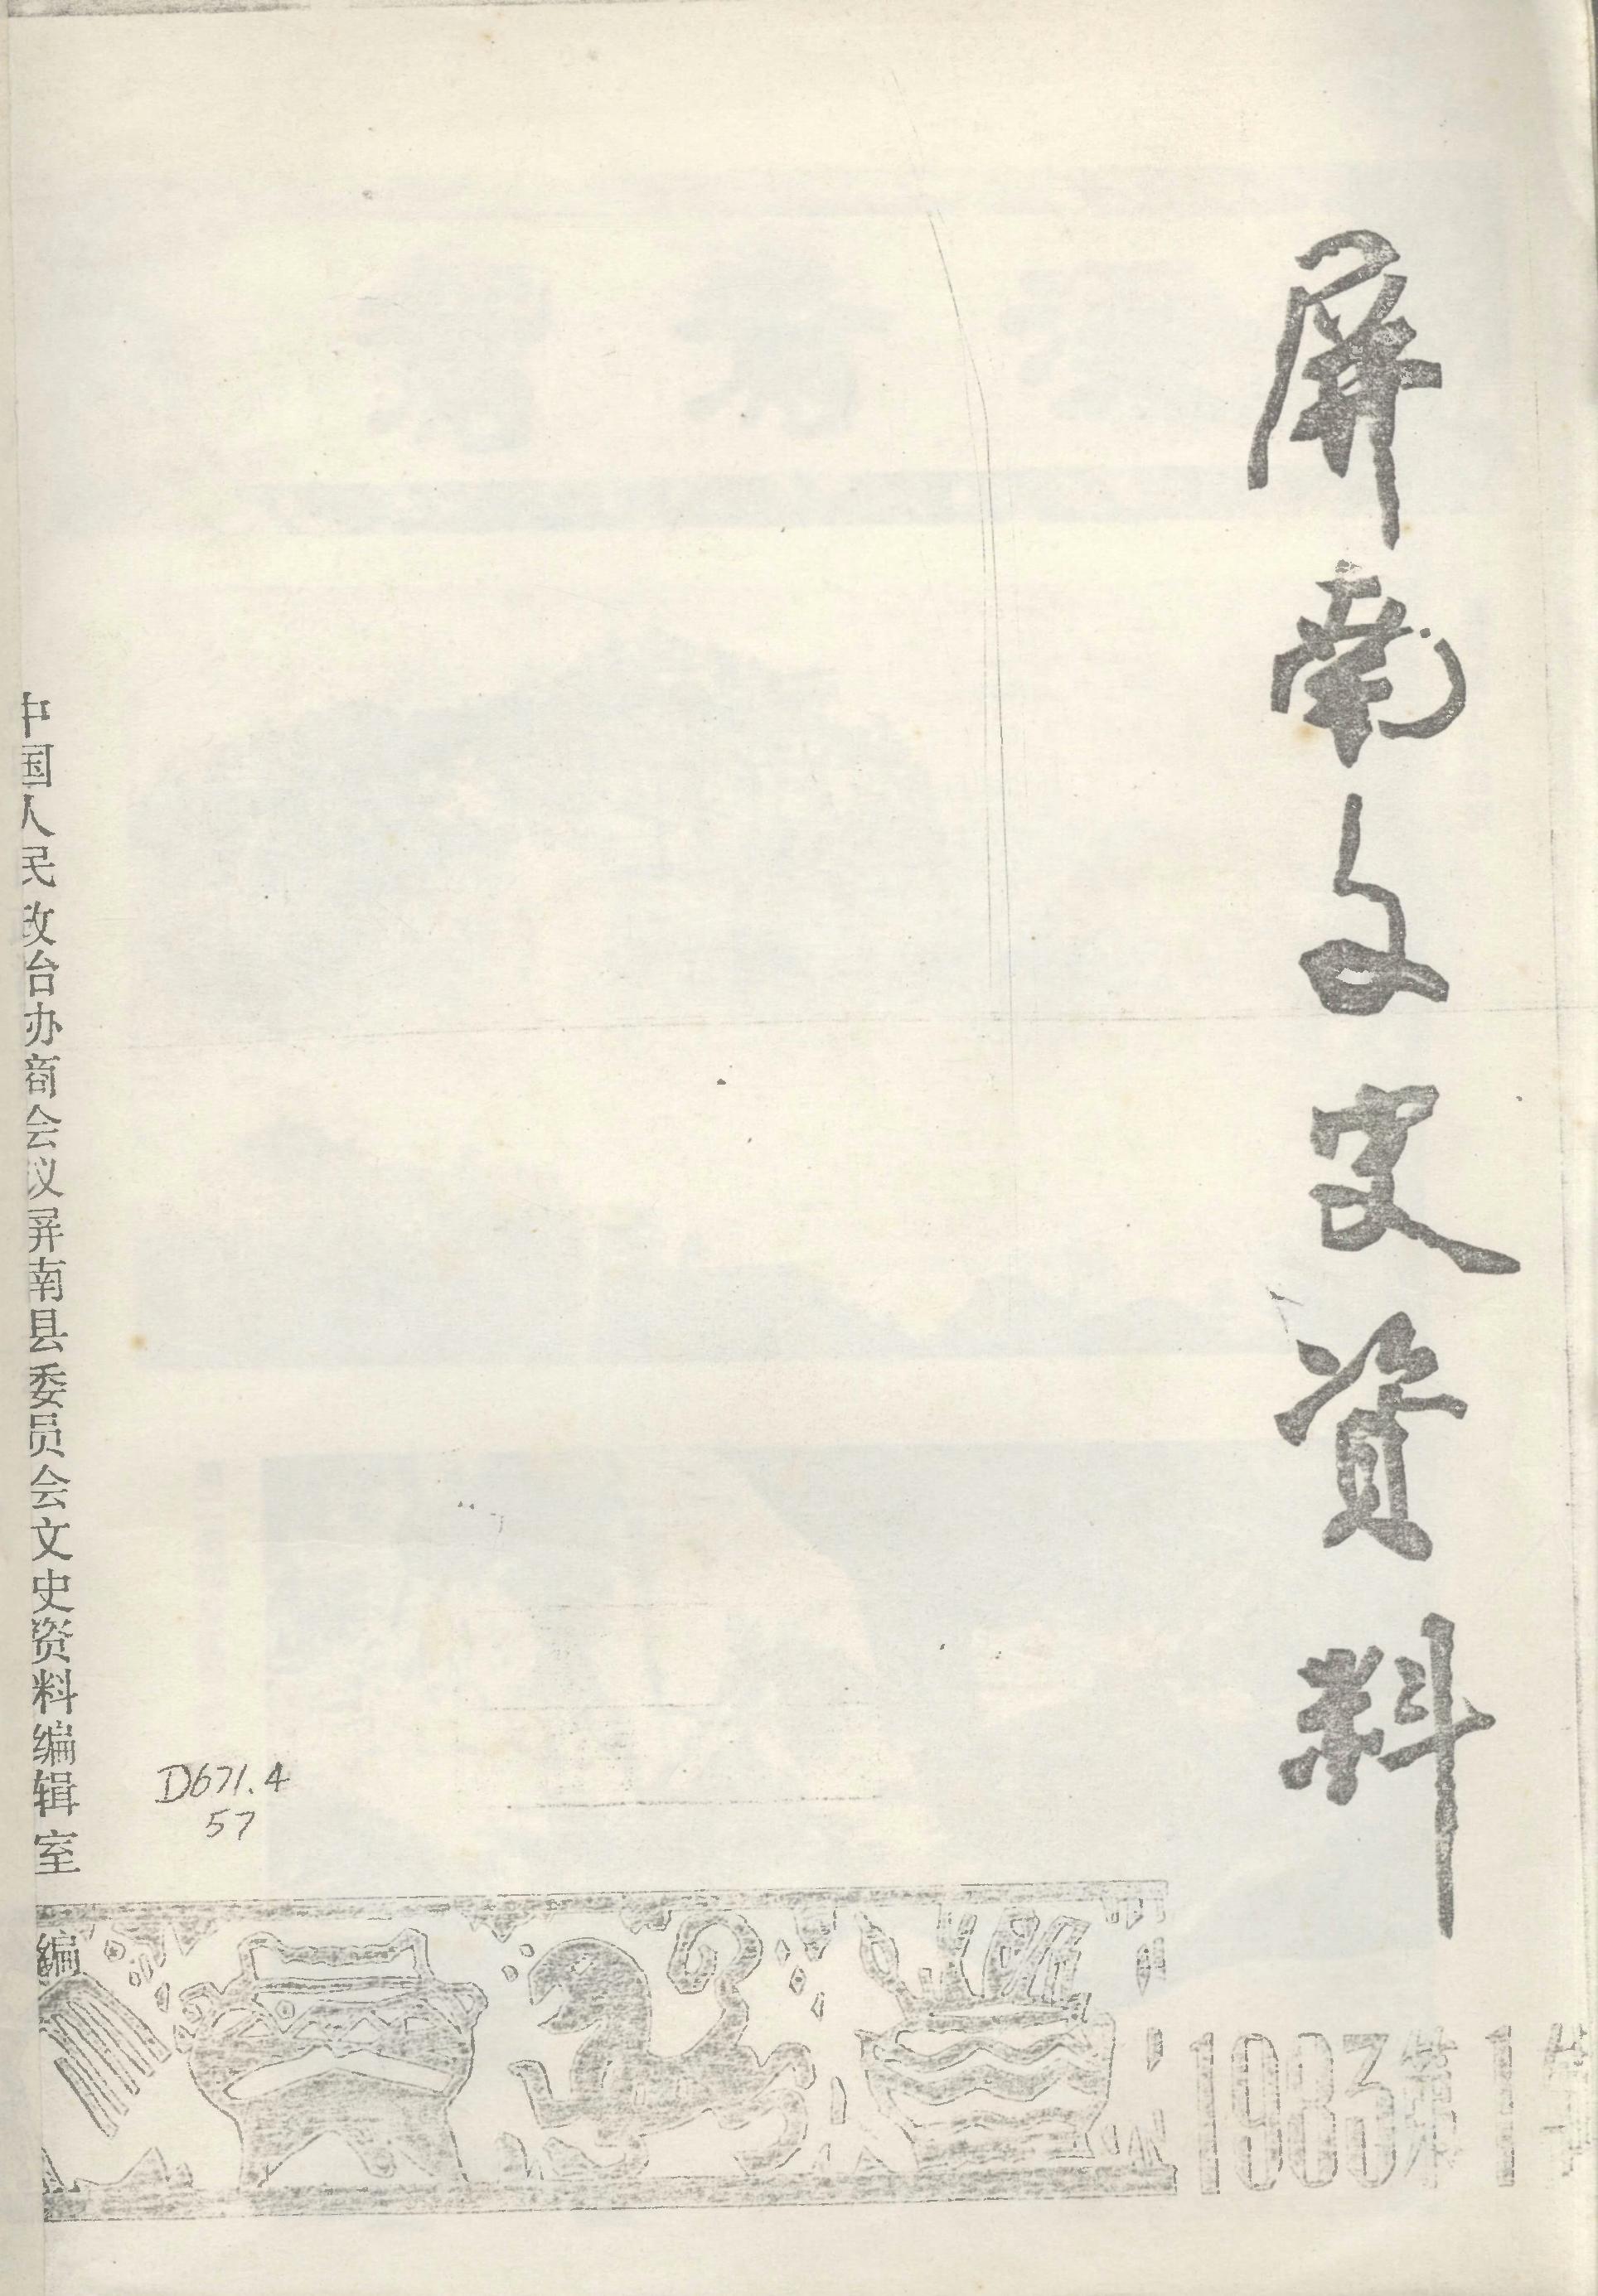 屏南文史資料
中国人民政治协商会议屏南县委员会文史资料编辑室 编
D671.4
57
1983第1